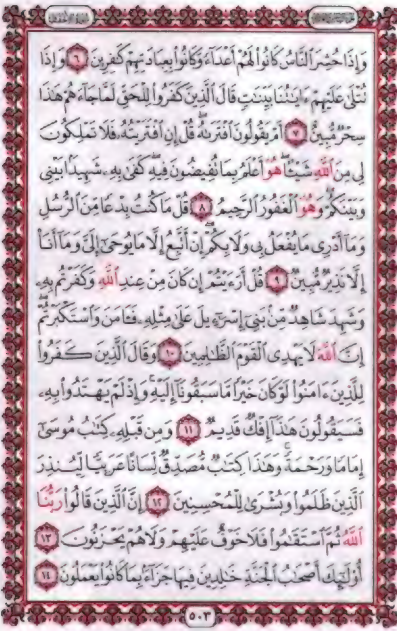 وَإِذَا حُشِرَ ٱلنَّاسُ كَانُوا۟ لَهُمْ أَعْدَآءً وَكَانُوا۟ بِعِبَادَتِهِمْ كَٰفِرِينَ ٦ وَإِذَا
تُتْلَىٰ عَلَيْهِمْ ءَايَٰتُنَا بَيِّنَٰتٍ قَالَ ٱلَّذِينَ كَفَرُوا۟ لِلْحَقِّ لَمَّا جَآءَهُمْ هَٰذَا
سِحْرٌ مُّبِينٌ ٧ أَمْ يَقُولُونَ ٱفْتَرَىٰهُ ۖ قُلْ إِنِ ٱفْتَرَيْتُهُۥ فَلَا تَمْلِكُونَ
لِى مِنَ ٱللَّهِ شَيْـًٔا ۖ هُوَ أَعْلَمُ بِمَا تُفِيضُونَ فِيهِ ۖ كَفَىٰ بِهِۦ شَهِيدًۢا بَيْنِى
وَبَيْنَكُمْ ۖ وَهُوَ ٱلْغَفُورُ ٱلرَّحِيمُ ٨ قُلْ مَا كُنتُ بِدْعًا مِّنَ ٱلرُّسُلِ
وَمَآ أَدْرِى مَا يُفْعَلُ بِى وَلَا بِكُمْ ۖ إِنْ أَتَّبِعُ إِلَّا مَا يُوحَىٰٓ إِلَىَّ وَمَآ أَنَا۠
إِلَّا نَذِيرٌ مُّبِينٌ ٩ قُلْ أَرَءَيْتُمْ إِن كَانَ مِنْ عِندِ ٱللَّهِ وَكَفَرْتُم بِهِۦ
وَشَهِدَ شَاهِدٌ مِّنۢ بَنِىٓ إِسْرَٰٓءِيلَ عَلَىٰ مِثْلِهِۦ فَـَٔامَنَ وَٱسْتَكْبَرْتُمْ ۖ
إِنَّ ٱللَّهَ لَا يَهْدِى ٱلْقَوْمَ ٱلظَّٰلِمِينَ ١٠ وَقَالَ ٱلَّذِينَ كَفَرُوا۟
لِلَّذِينَ ءَامَنُوا۟ لَوْ كَانَ خَيْرًا مَّا سَبَقُونَآ إِلَيْهِ ۚ وَإِذْ لَمْ يَهْتَدُوا۟ بِهِۦ
فَسَيَقُولُونَ هَٰذَآ إِفْكٌ قَدِيمٌ ١١ وَمِن قَبْلِهِۦ كِتَٰبُ مُوسَىٰٓ
إِمَامًا وَرَحْمَةً ۚ وَهَٰذَا كِتَٰبٌ مُّصَدِّقٌ لِّسَانًا عَرَبِيًّا لِّيُنذِرَ
ٱلَّذِينَ ظَلَمُوا۟ وَبُشْرَىٰ لِلْمُحْسِنِينَ ١٢ إِنَّ ٱلَّذِينَ قَالُوا۟ رَبُّنَا
ٱللَّهُ ثُمَّ ٱسْتَقَٰمُوا۟ فَلَا خَوْفٌ عَلَيْهِمْ وَلَا هُمْ يَحْزَنُونَ ١٣
أُو۟لَٰٓئِكَ أَصْحَٰبُ ٱلْجَنَّةِ خَٰلِدِينَ فِيهَا جَزَآءًۢ بِمَا كَانُوا۟ يَعْمَلُونَ ١٤
٥٠٣